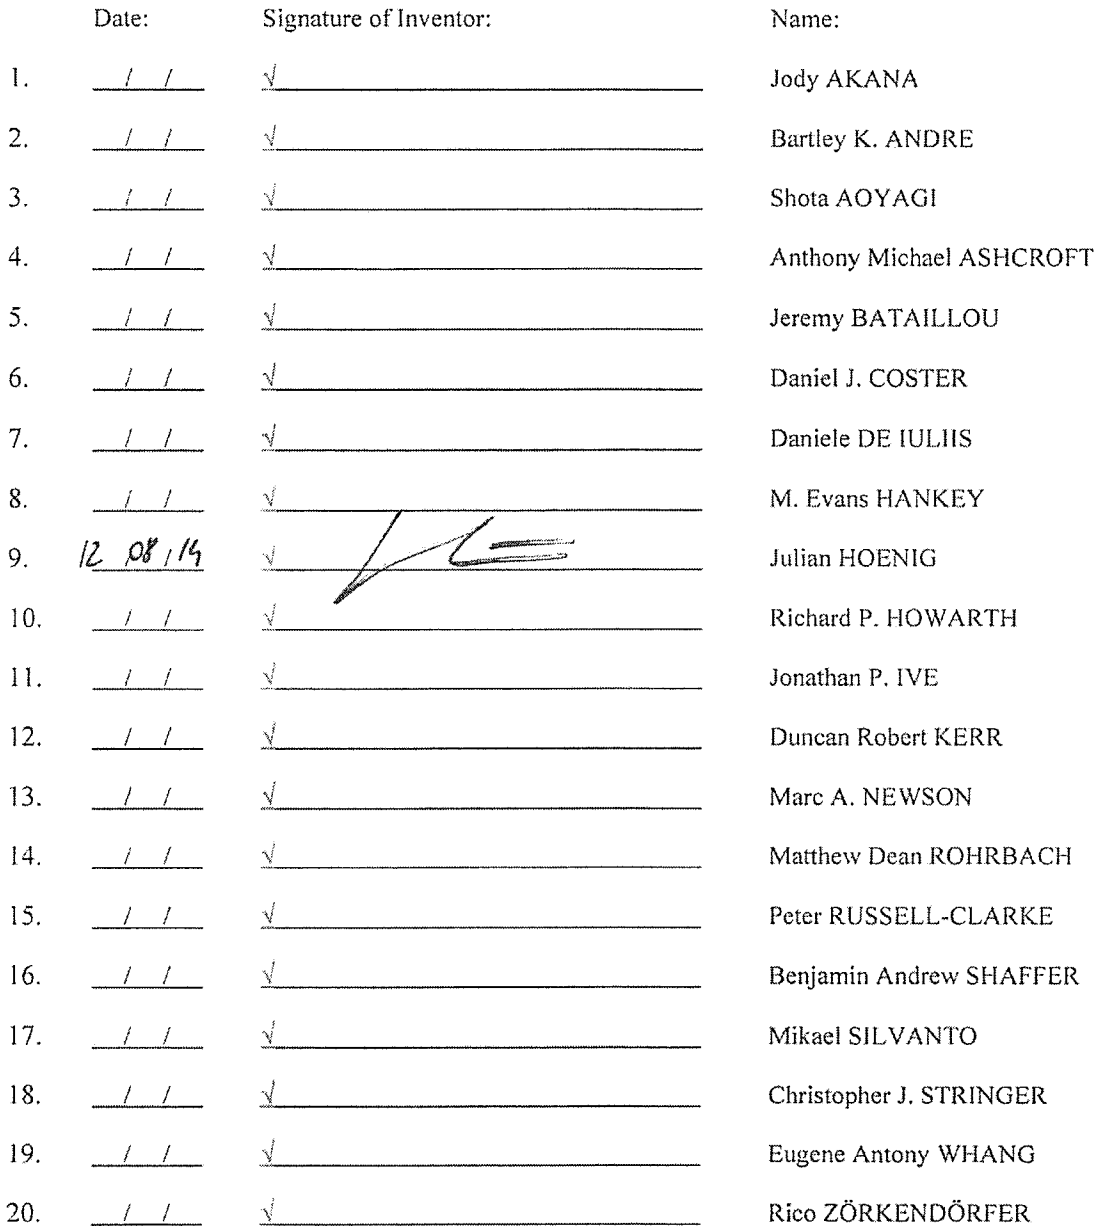 Date: Signature of Inventor: Name:
1. / / √ Jody AKANA
2. / / √ Bartley K. ANDRE
3. / / √ Shota AOYAGI
4. / / √ Anthony Michael ASHCROFT
5. / / √ Jeremy BATAILLOU
6. / / √ Daniel J. COSTER
7. / / √ Daniele DE IULIIS
8. / / √ M. Evans HANKEY
9. 12 /08/14 √ Julian HOENIG
10. / / √ Richard P. HOWARTH
11. / / √ Jonathan P. IVE
12. / / √ Duncan Robert KERR
13. / / √ Marc A. NEWSON
14. / / √ Matthew Dean ROHRBACH
15. / / √ Peter RUSSELL-CLARKE
16. / / √ Benjamin Andrew SHAFFER
17. / / √ Mikael SILVANTO
18. / / √ Christopher J. STRINGER
19. / / √ Eugene Antony WHANG
20. / / √ Rico ZÖRKENDÖRFER